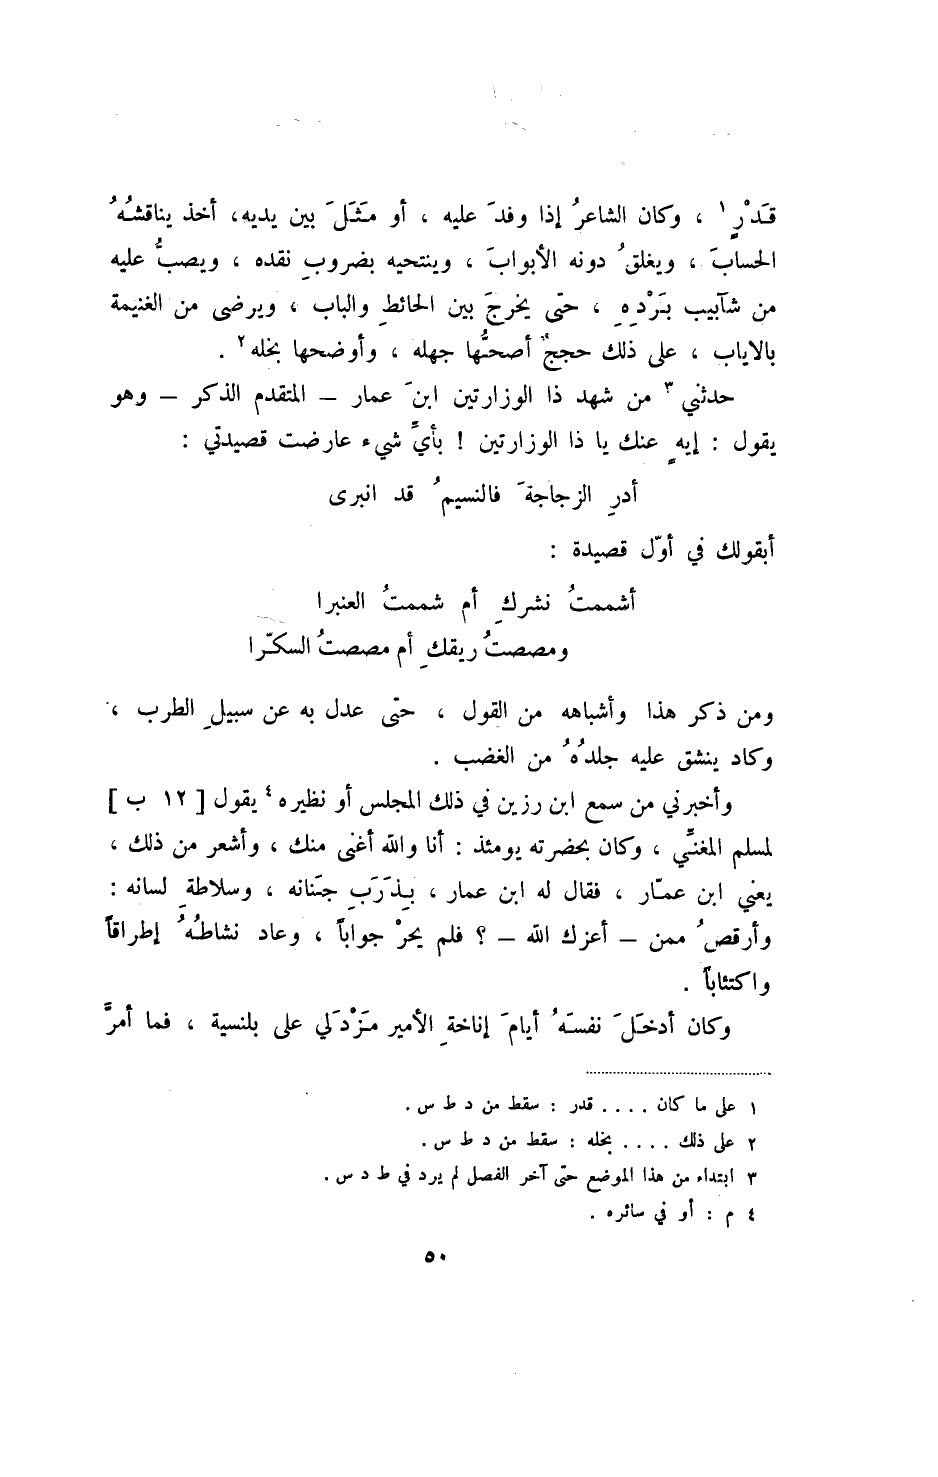 قَدَرٍ ١ ، وكان الشاعرُ إذا وفدَ عليه ، أو مَثَلَ بين يديه، أخذ يناقشُهُ
الحسابَ ، ويغلقُ دونه الأبوابَ ، وينتحيه بضروبِ نقده ، ويصبُّ عليه
من شآبيب بَرْدِهِ ، حتّى يخرجَ بين الحائطِ والباب ، ويرضى من الغنيمة
بالاياب ، على ذلك حججٌ أصحُّها جهله ، وأوضحها بخله ٢ .
حدثني ٣ من شهد ذا الوزارتين ابنَ عمار – المتقدم الذكر – وهو
يقول : إيهٍ عنك يا ذا الوزارتين ! بأيِّ شيء عارضت قصيدتي :
أدرِ الزجاجةَ فالنسيمُ قد انبرى
أبقولك في أوّل قصيدة :
أشممتُ نشركِ أم شممتُ العنبرا
ومصصتُ ريقكِ أم مصصتُ السكّرا
ومن ذكر هذا وأشباهه من القول ، حتّى عدل به عن سبيلِ الطرب ،
وكاد ينشق عليه جلدُهُ من الغضب .
وأخبرني من سمع ابن رزين في ذلك المجلس أو نظيره ٤ يقول [ ١٢ ب ]
لمسلم المغنِّي ، وكان بحضرته يومئذ : أنا والله أغنى منك ، وأشعر من ذلك ،
يعني ابن عمّار ، فقال له ابن عمار ، بِذَرَبِ جَنانه ، وسلاطةِ لسانه :
وأرقصُ ممن – أعزك الله – ؟ فلم يحرْ جواباً ، وعاد نشاطُهُ إطراقاً
واكتئاباً .
وكان أدخَلَ نفسَهُ أيامَ إناخةِ الأمير مَزْدَلي على بلنسية ، فما أمرَّ
١ على ما كان .... قدر : سقط من د ط س .
٢ على ذلك .... بخله : سقط من د ط س .
٣ ابتداء من هذا الموضع حتّى آخر الفصل لم يرد في ط د س .
٤ م : أو في سائره .
٥٠